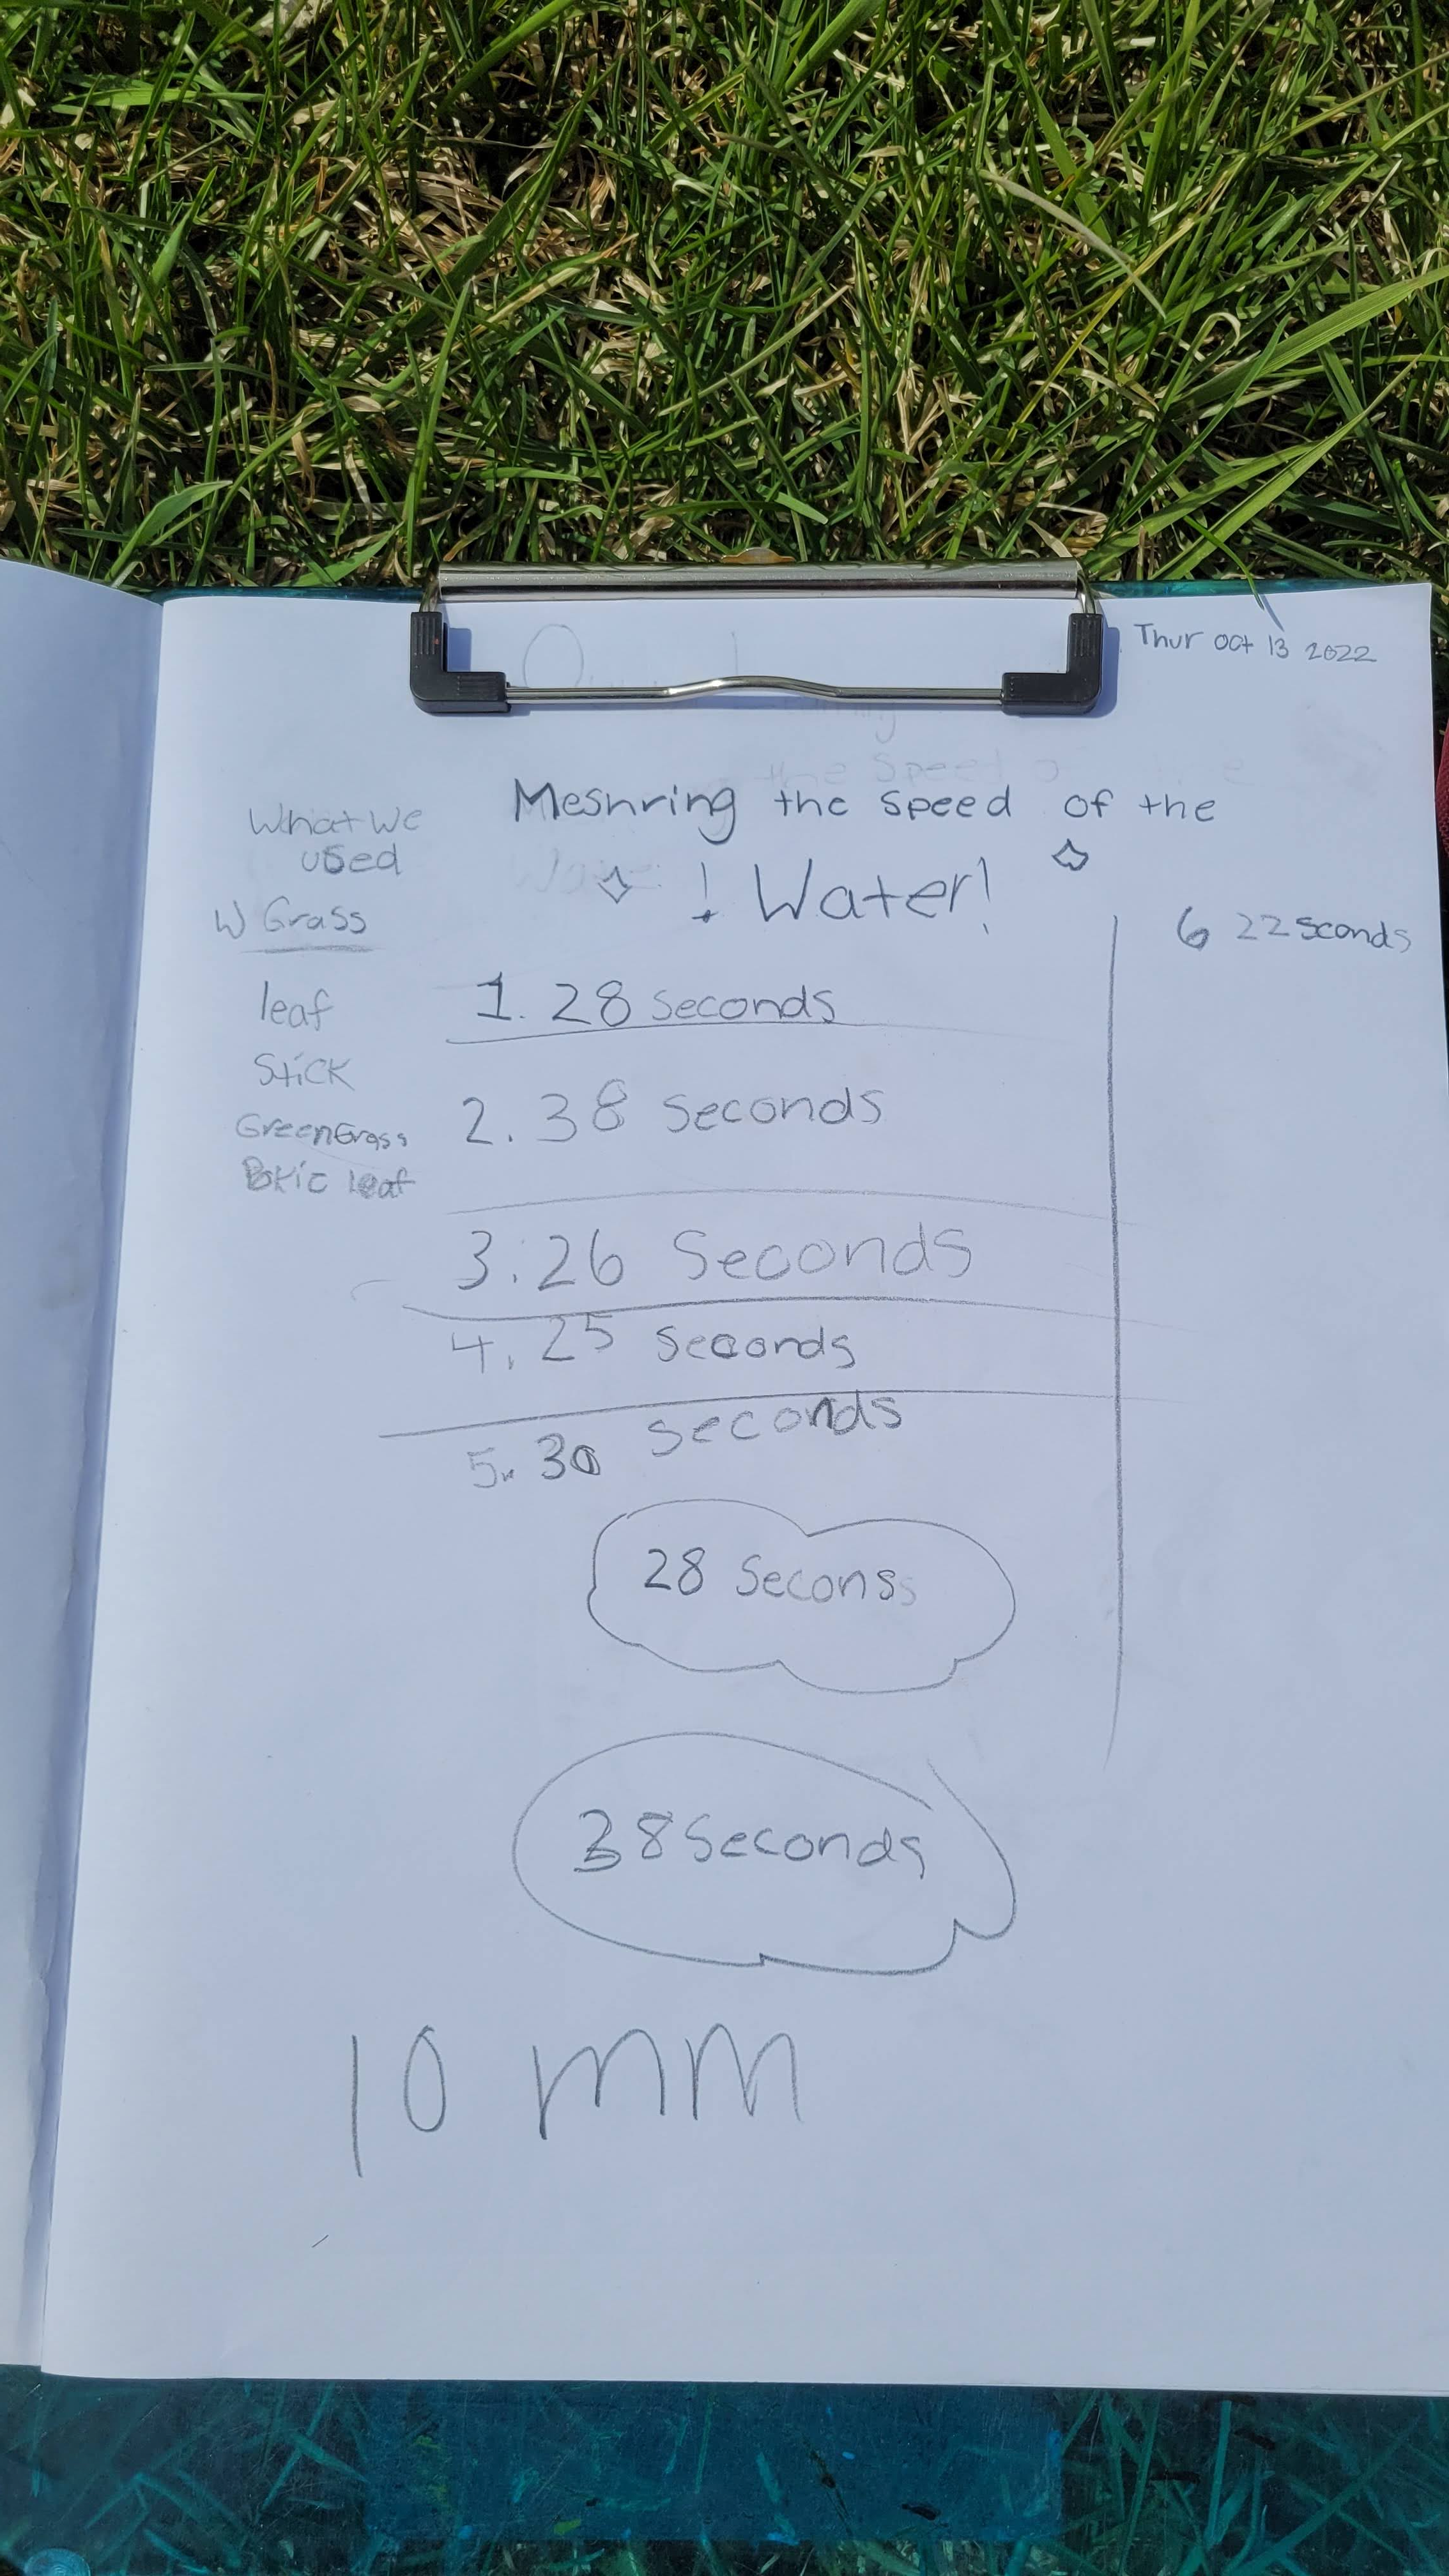 Thur oct 13 2022
Mesnring the speed of the
! Water!
What we
used
W Grass
leaf
Stick
GreenGrass
leaf
1. 28 seconds
2. 38 seconds
3. 26 Seconds
4. 25 seconds
5. 30 seconds
28 Seconss
38 Seconds
10 mm
6 22 sconds